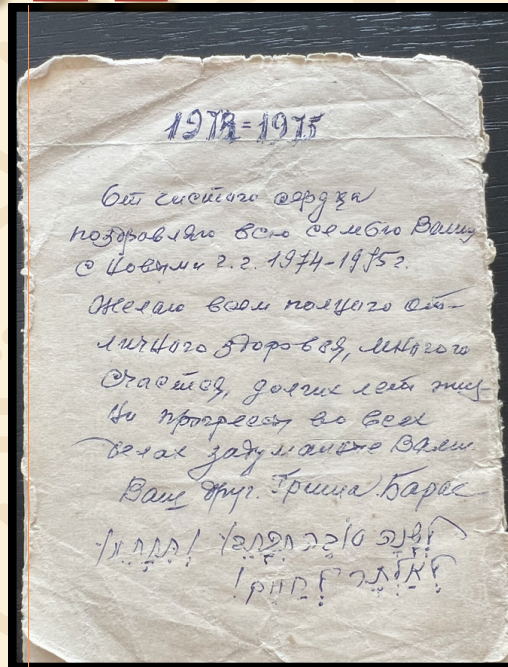 1974=1975
От чистаго сердца
поздровляю всю семью Вашу
с Новыми г.г. 1974-1975г.
Желаю всем полного от-
личного здоровья, многого
счастья, долгих лет жиз
ни прогресса во всех
делах задуманые Вами
Ваш друг. Гриша Барас
לְשָׁנָה טוֹבָה